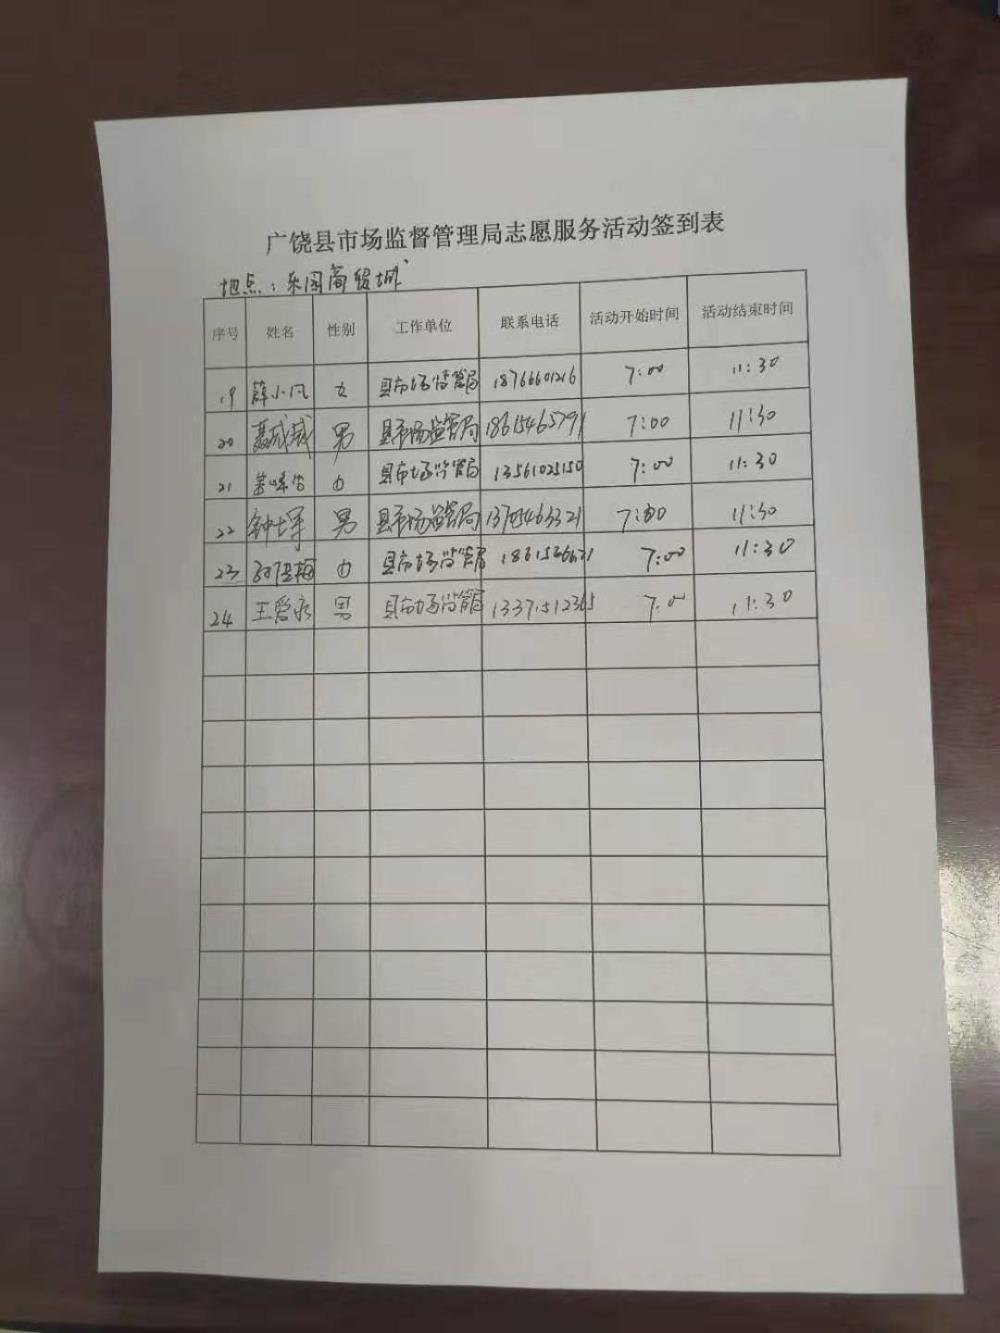 广饶县市场监督管理局志愿服务活动签到表
地点：乐园商贸城
序号 姓名 性别 工作单位 联系电话 活动开始时间 活动结束时间
19 薛小凤 女 县市场监管局 18766601216 7:00 11:30
20 聂成城 男 县市场监管局 18615465791 7:00 11:30
21 女 县市场监管局 13561025150 7:00 11:30
22 钟士军 男 县市场监管局 13705463321 7:00 11:30
23 女 县市场监管局 7:00 11:30
24 王爱永 男 县市场监管局 13371512365 7:00 11:30